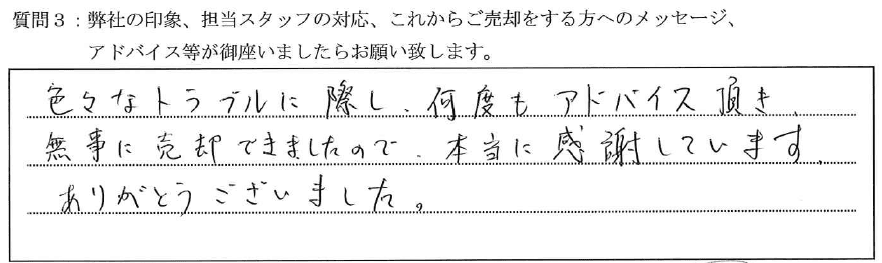 質問３：弊社の印象、担当スタッフの対応、これからご売却をする方へのメッセージ、
アドバイス等が御座いましたらお願い致します。
色々なトラブルに際し、何度もアドバイス頂き、
無事に売却できましたので、本当に感謝しています。
ありがとうございました。